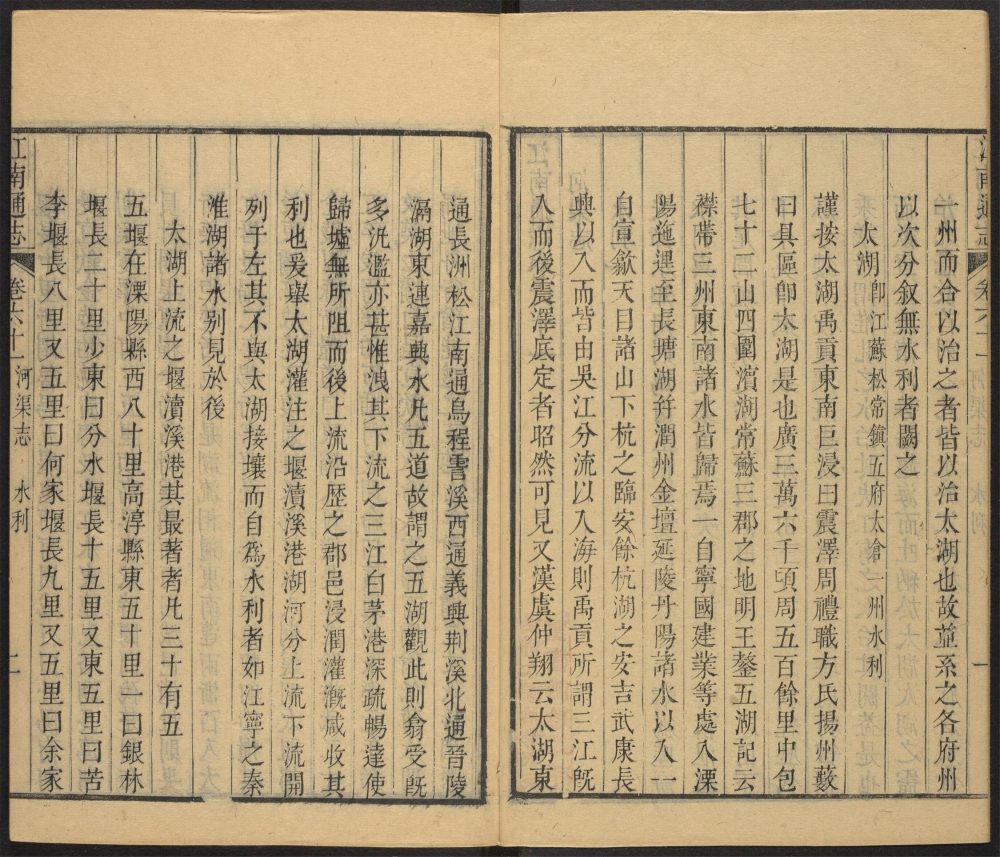 一州而合以治之者皆以治太湖也故並系之各府州
以次分叙無水利者闕之
太湖即江蘇松常鎮五府太倉一州水利
謹按太湖禹貢東南巨浸曰震澤周禮職方氏揚州藪
曰具區卽太湖是也廣三萬六千頃周五百餘里中包
七十二山四圍濵湖常蘇三郡之地明王鏊五湖記云
襟帶三州東南諸水皆歸焉一自寧國建業等處入溧
陽迤邐至長塘湖幷潤州金壇延陵丹陽諸水以入一
自宣歙天目諸山下杭之臨安餘杭湖之安吉武康長
興以入而皆由吳江分流以入海則禹貢所謂三江旣
入而後震澤底定者昭然可見又漢虞仲翔云太湖東
通長洲松江南通烏程霅溪西通義興荆溪北通晉陵
滆湖東連嘉興水凡五道故謂之五湖觀此則翕受旣
多汎濫亦甚惟洩其下流之三江白茅港深疏暢達使
歸墟無所阻而後上流沿歷之郡邑浸潤灌漑咸收其
利也爰舉太湖灌注之堰瀆溪港湖河分上流下流開
列于左其不與太湖接壤而自爲水利者如江寧之秦
淮湖諸水别見於後
太湖上流之堰瀆溪港其最著者凡三十有五
五堰在溧陽縣西八十里高淳縣東五十里一曰銀林
堰長二十里少東曰分水堰長十五里又東五里曰苦
李堰長八里又五里曰何家堰長九里又五里曰余家
江南通志 卷六十一 河渠志 水利 二